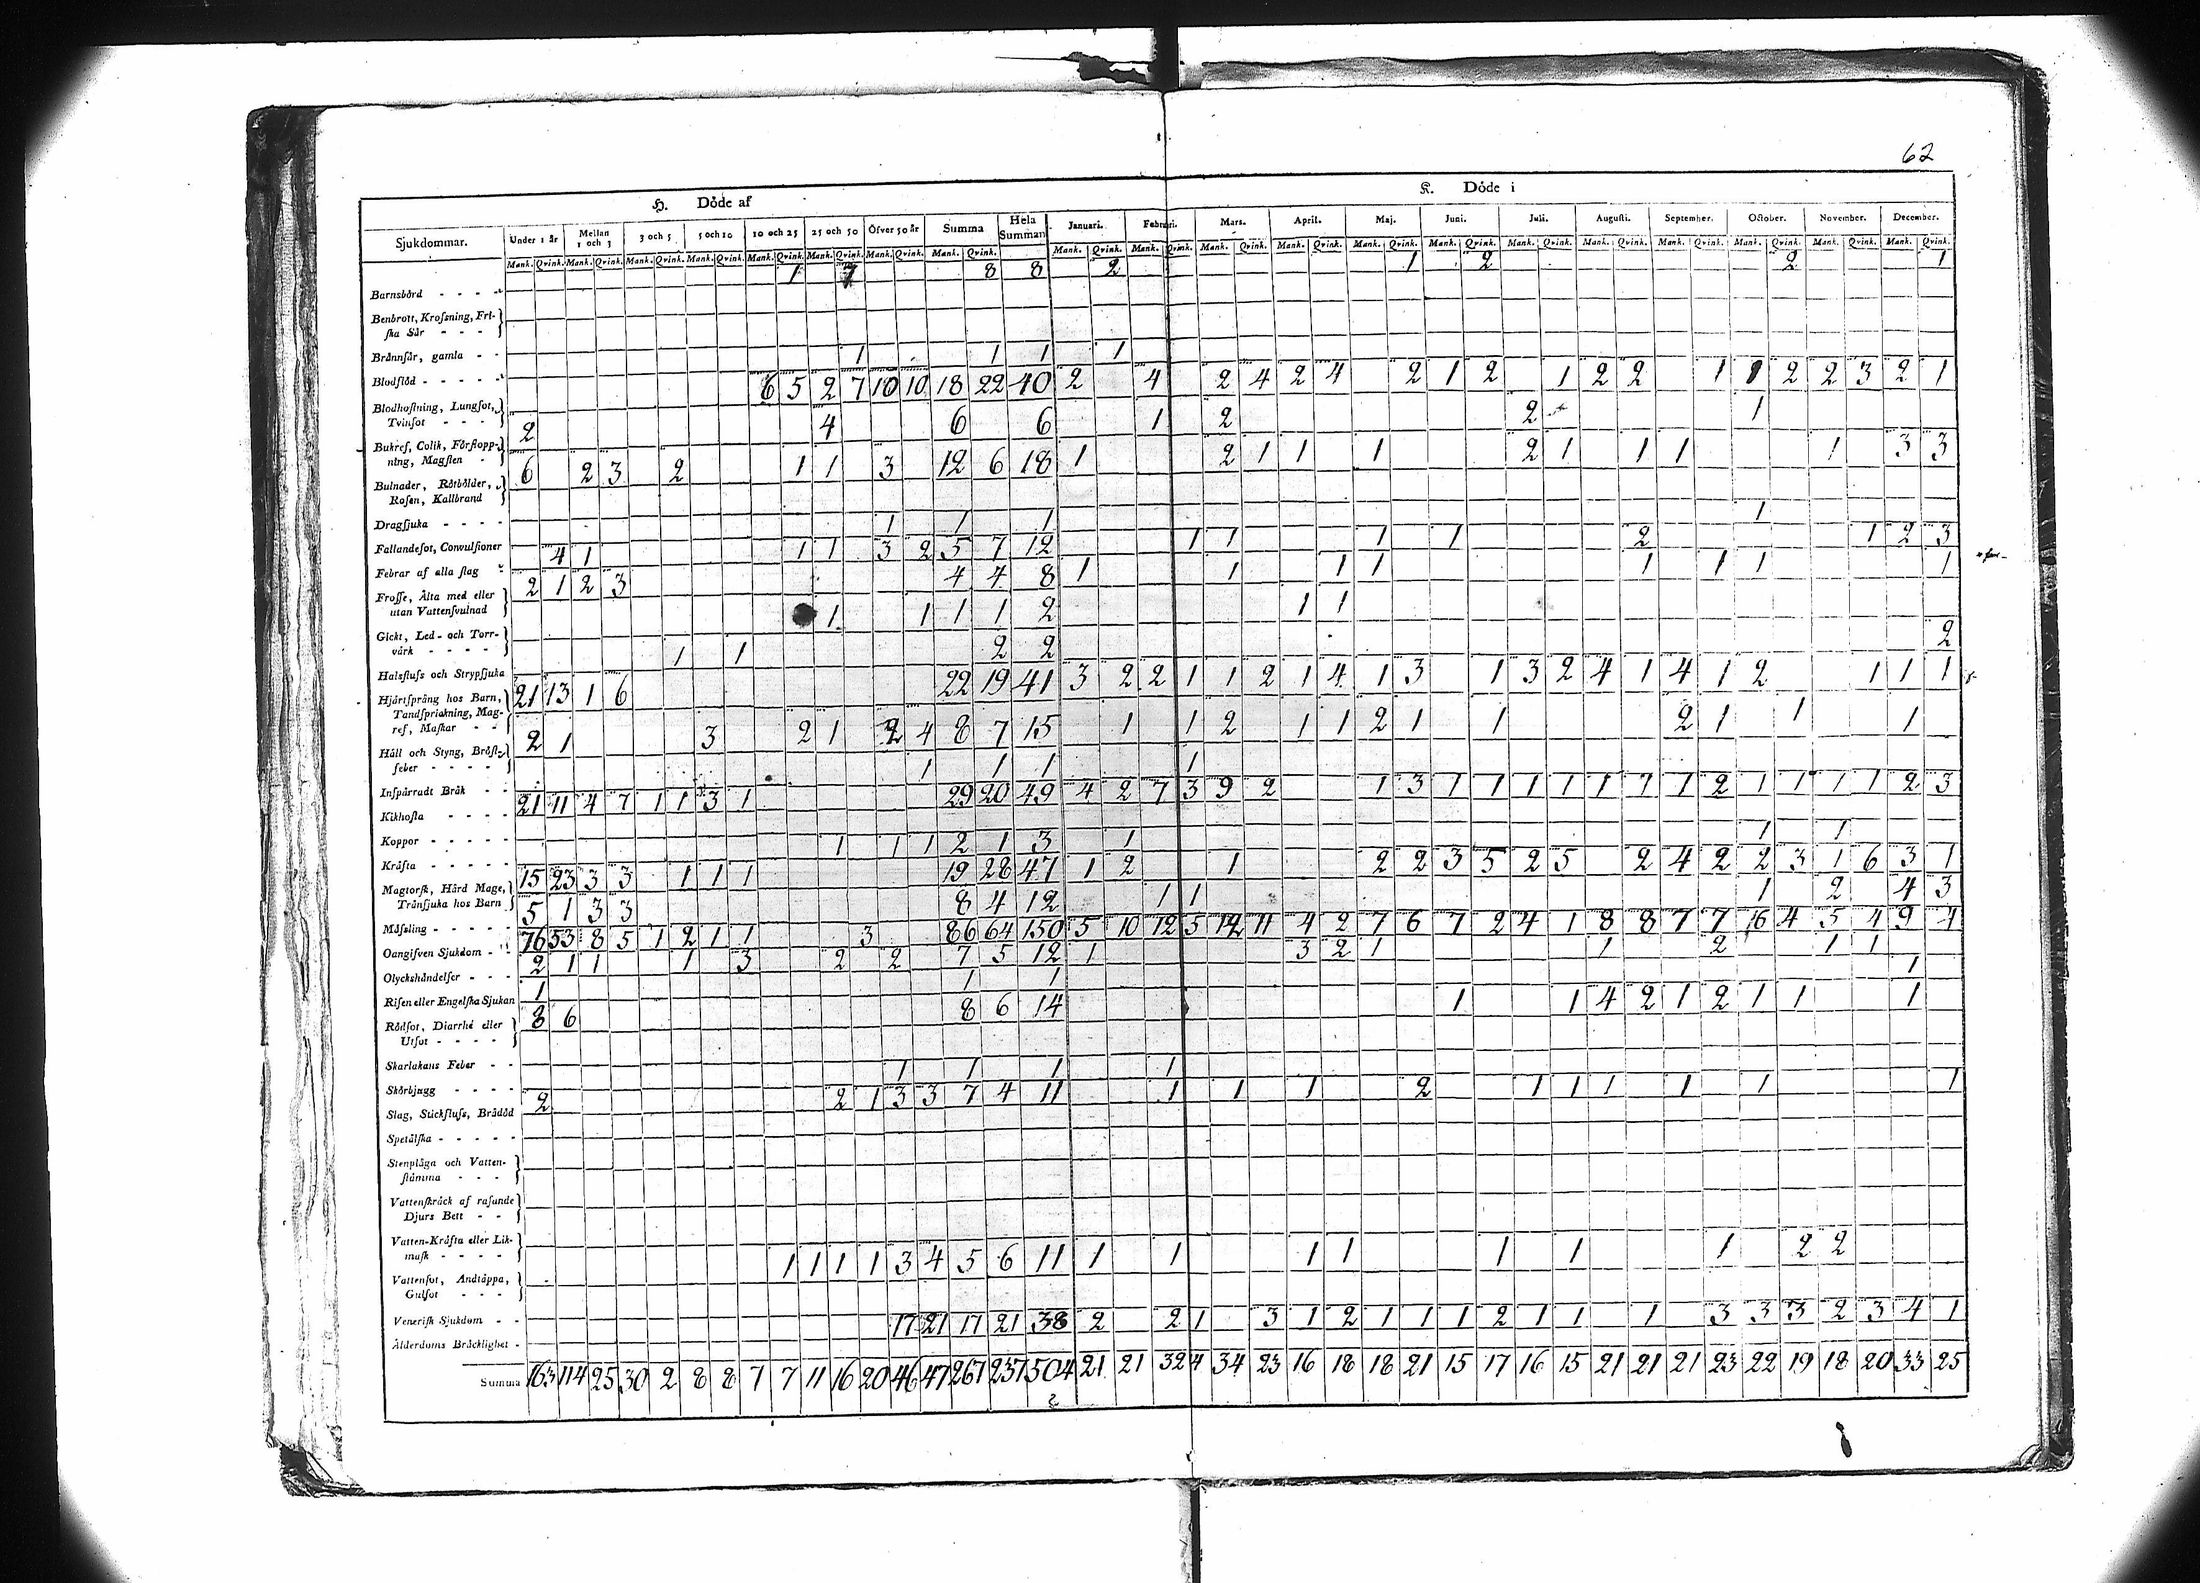 62
H. Döde af K. Döde i
Sjukdommar. Under 1 år Mellan 1 och 3 3 och 5 5 och 10 10 och 25 25 och 50 Öfver 50 år Summa Hela Summan Januari. Februari. Mars. April. Maj. Junï. Juli. Augusti. September. October. November. December.
Mank. Qvink. Mank. Qvink. Mank. Qvink. Mank. Qvink. Mank. Qvink. Mank. Qvink. Mank. Qvink. Mank. Qvink. Mank. Qvink. Mank. Qvink. Mank. Qvink. Mank. Qvink. Mank. Qvink. Mank. Qvink. Mank. Qvink. Mank. Qvink. Mank. Qvink. Mank. Qvink. Mank. Qvink. Mank. Qvink.
Barnsbörd - - - - 1 7 8 8 2 1 2 2 1
Benbrott, Krosſning, Fri-
ſka Sår - - -
Brännſår, gamla - - 1 1 1 1
Blodflöd - - - - - 6 5 2 7 10 10 18 22 40 2 4 2 4 2 4 2 1 2 1 2 2 1 1 2 2 3 2 1
Blodhoſtning, Lungſot,
Tvinſot - - - 2 4 6 6 1 2 2 1
Bukref, Colik, Förſtopp-
ning, Magſten - 6 2 3 2 1 1 3 12 6 18 1 2 1 1 1 2 1 1 1 1 3 3
Bulnader, Rötbölder,
Roſen, Kallbrand
Dragſjuka - - - - 1 1 1 1
Fallandeſot, Convulſioner 4 1 1 1 3 2 5 7 12 1 1 1 1 2 1 2 3
Febrar af alla ſlag 2 1 2 3 4 4 8 1 1 1 1 1 1 1 1
Froſſe, Älta med eller
utan Vattenſvulnad 1 1 1 1 2 1 1
Gickt, Led- och Torr-
värk - - - - 1 1 2 2 2
Halsfluſs och Strypſjuka 21 13 1 6 22 19 41 3 2 2 1 1 2 1 4 1 3 1 3 2 4 1 4 1 2 1 1 1
Hjärtſprång hos Barn,
Tandſprickning, Mag-
ref, Maſkar - - 2 1 3 2 1 2 4 8 7 15 1 1 2 1 1 2 1 1 2 1 1 1
Håll och Styng, Bröſt-
feber - - - - 1 1 1 1
Inſpärradt Bråk - - 21 11 4 7 1 1 3 1 29 20 49 4 2 7 3 9 2 1 3 1 1 1 1 1 1 1 2 1 1 1 1 2 3
Kikhoſta - - - -
Koppor - - - - - 1 1 1 2 1 3 1 1 1
Kräfta - - - - - 15 23 3 3 1 1 1 19 28 47 1 2 1 2 2 3 5 2 5 2 4 2 2 3 1 6 3 1
Magtorſk, Hård Mage,
Trånſjuka hos Barn 5 1 3 3 8 4 12 1 1 1 2 4 3
Mäſsling - - - - - 76 53 8 5 1 2 1 1 3 86 64 150 5 10 12 5 12 11 4 2 7 6 7 2 4 1 8 8 7 7 16 4 5 4 9 4
Oangifven Sjukdom - 2 1 1 1 3 2 2 7 5 12 1 3 2 1 1 2 1 1
Olyckshändelſer - - - 1 1 1 1
Riſen eller Engelſka Sjukan 8 6 8 6 14 1 1 4 2 1 2 1 1 1
Rödſot, Diarrhé eller
Utſot - - - -
Skarlakans Feber - - 1 1 1 1
Skörbjugg - - - - 2 2 1 3 3 7 4 11 1 1 1 2 1 1 1 1 1 1
Slag, Stickfluſs, Brådöd
Spetälſka - - - - -
Stenplåga och Vatten-
ſtämma - - -
Vattenſkräck af raſande
Djurs Bett - -
Vatten-Kräfta eller Lik-
maſk - - - - 1 1 1 1 3 4 5 6 11 1 1 1 1 1 1 1 2 2
Vattenſot, Andtäppa,
Gulſot - - -
Veneriſk Sjukdom - - 17 21 17 21 38 2 2 1 3 1 2 1 1 1 2 1 1 1 3 3 3 2 3 4 1
Ålderdoms Bräcklighet -
Summa 163 114 25 30 2 8 8 7 7 11 16 20 46 47 267 237 504 21 21 32 24 34 23 16 18 18 21 15 17 16 15 21 21 21 23 22 19 18 20 33 25